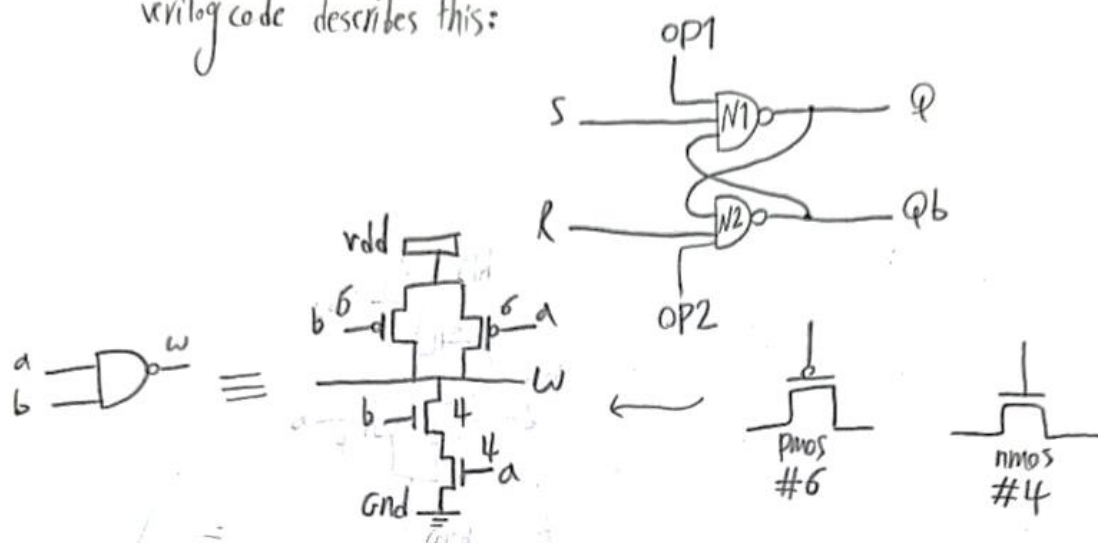 verilog code describes this:
OP1
S
N1
Q
R
N2
Qb
OP2
vdd
b 6
6 a
a
b
w
≡
W
b
4
4
a
Gnd
pmos
#6
nmos
#4